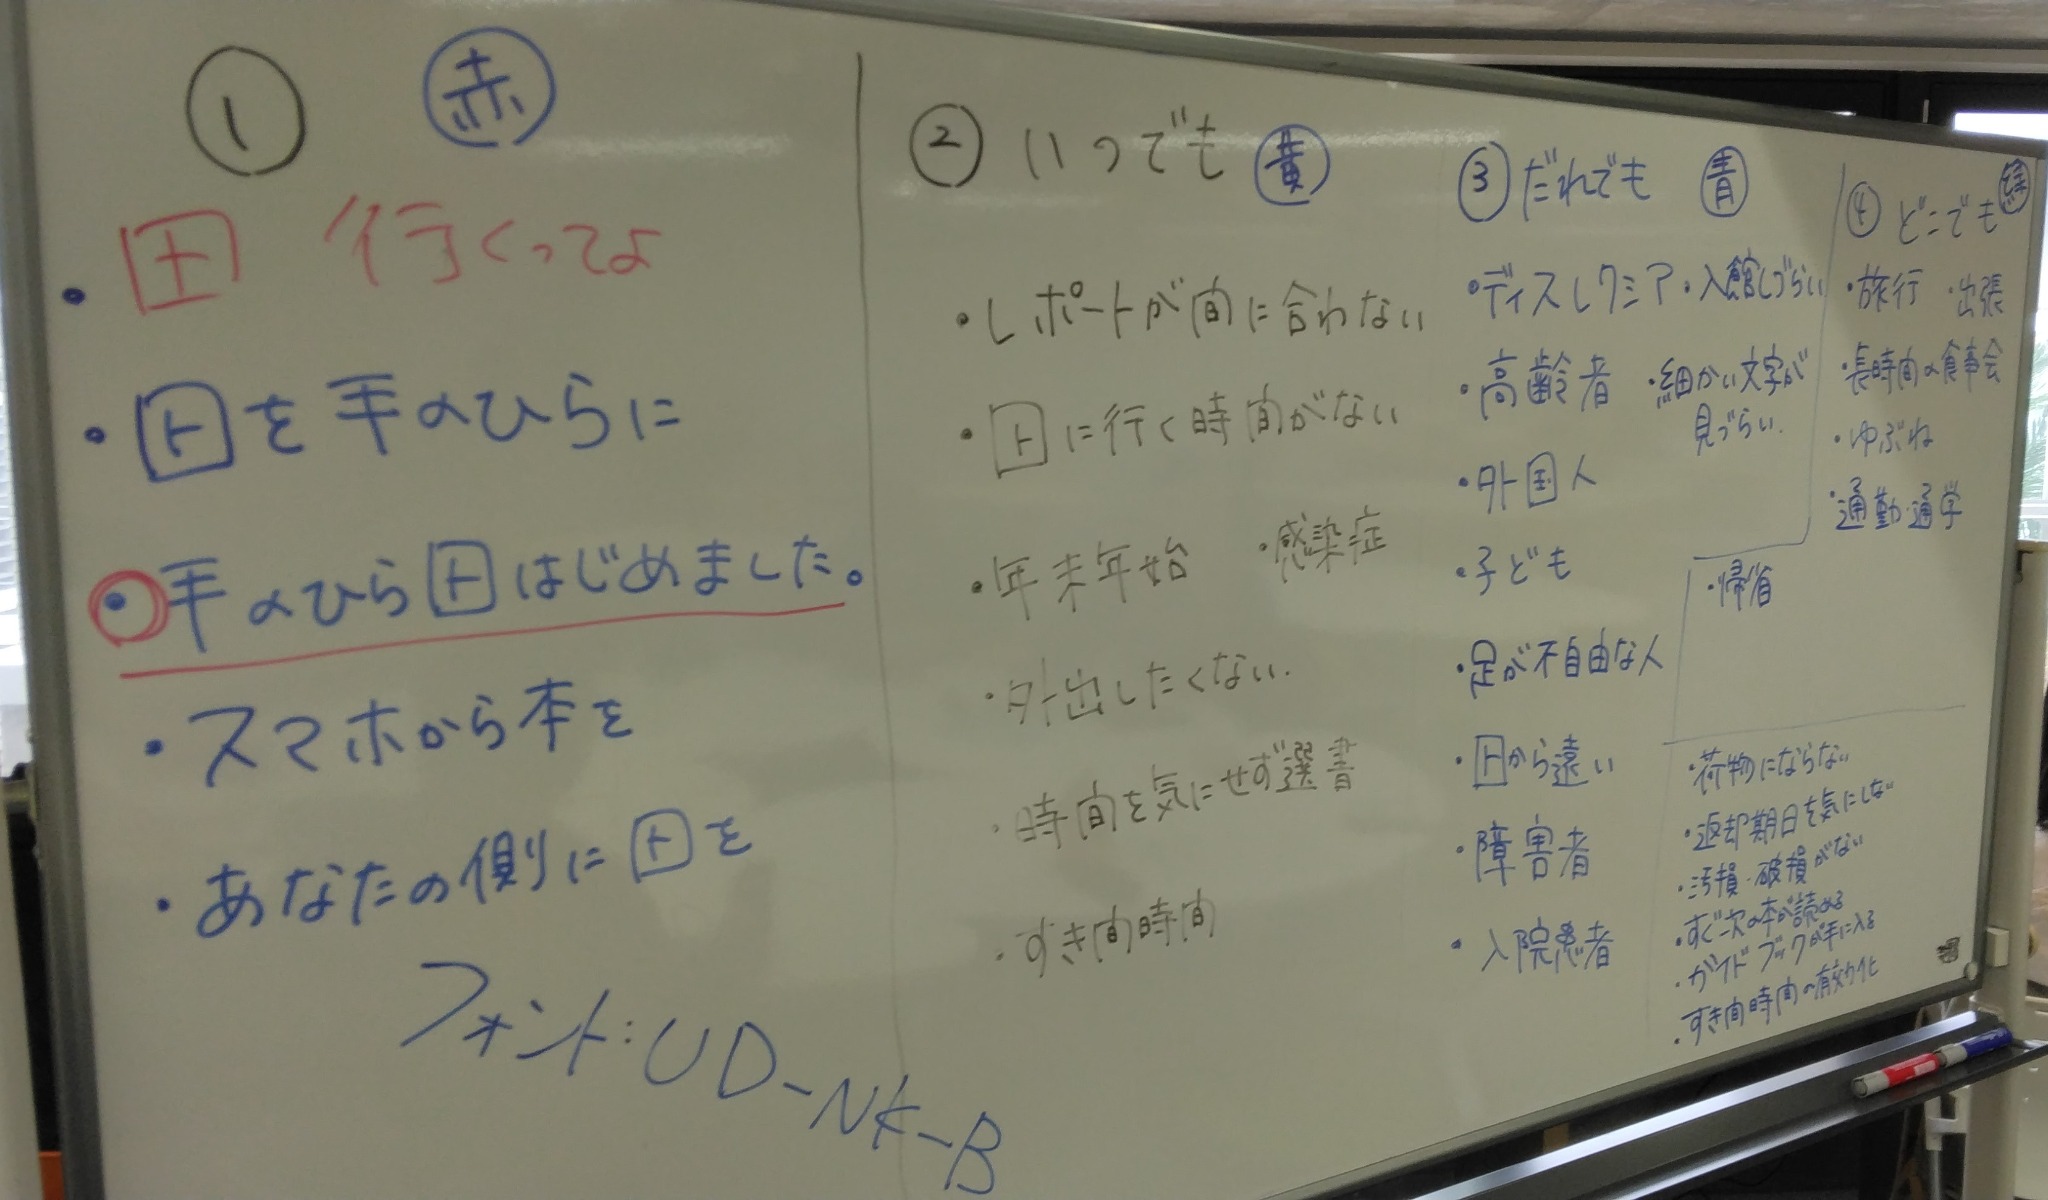 ① 赤
・囗ト 行くってよ
・囗トを手のひらに
・手のひら囗トはじめました。
・スマホから本を
・あなたの側に囗トを
フォント:UD-NK-B
② いつでも 黄
・レポートが間に合わない
・囗トに行く時間がない
・年末年始 ・感染症
・外出したくない.
・時間を気にせず選書
・すき間時間
③ だれでも 青
・ディスレクシア ・入館しづらい
・高齢者 ・細かい文字が
見づらい.
・外国人
・子ども
・足が不自由な人
・囗トから遠い
・障害者
・入院患者
④ どこでも 緑
・旅行 ・出張
・長時間の食事会
・ゆぶね
・通勤・通学
・帰省
・荷物にならない
・返却期日を気にしない
・汚損・破損がない
・すぐ次の本が読める
・ガイドブックが手に入る
・すき間時間の有効化